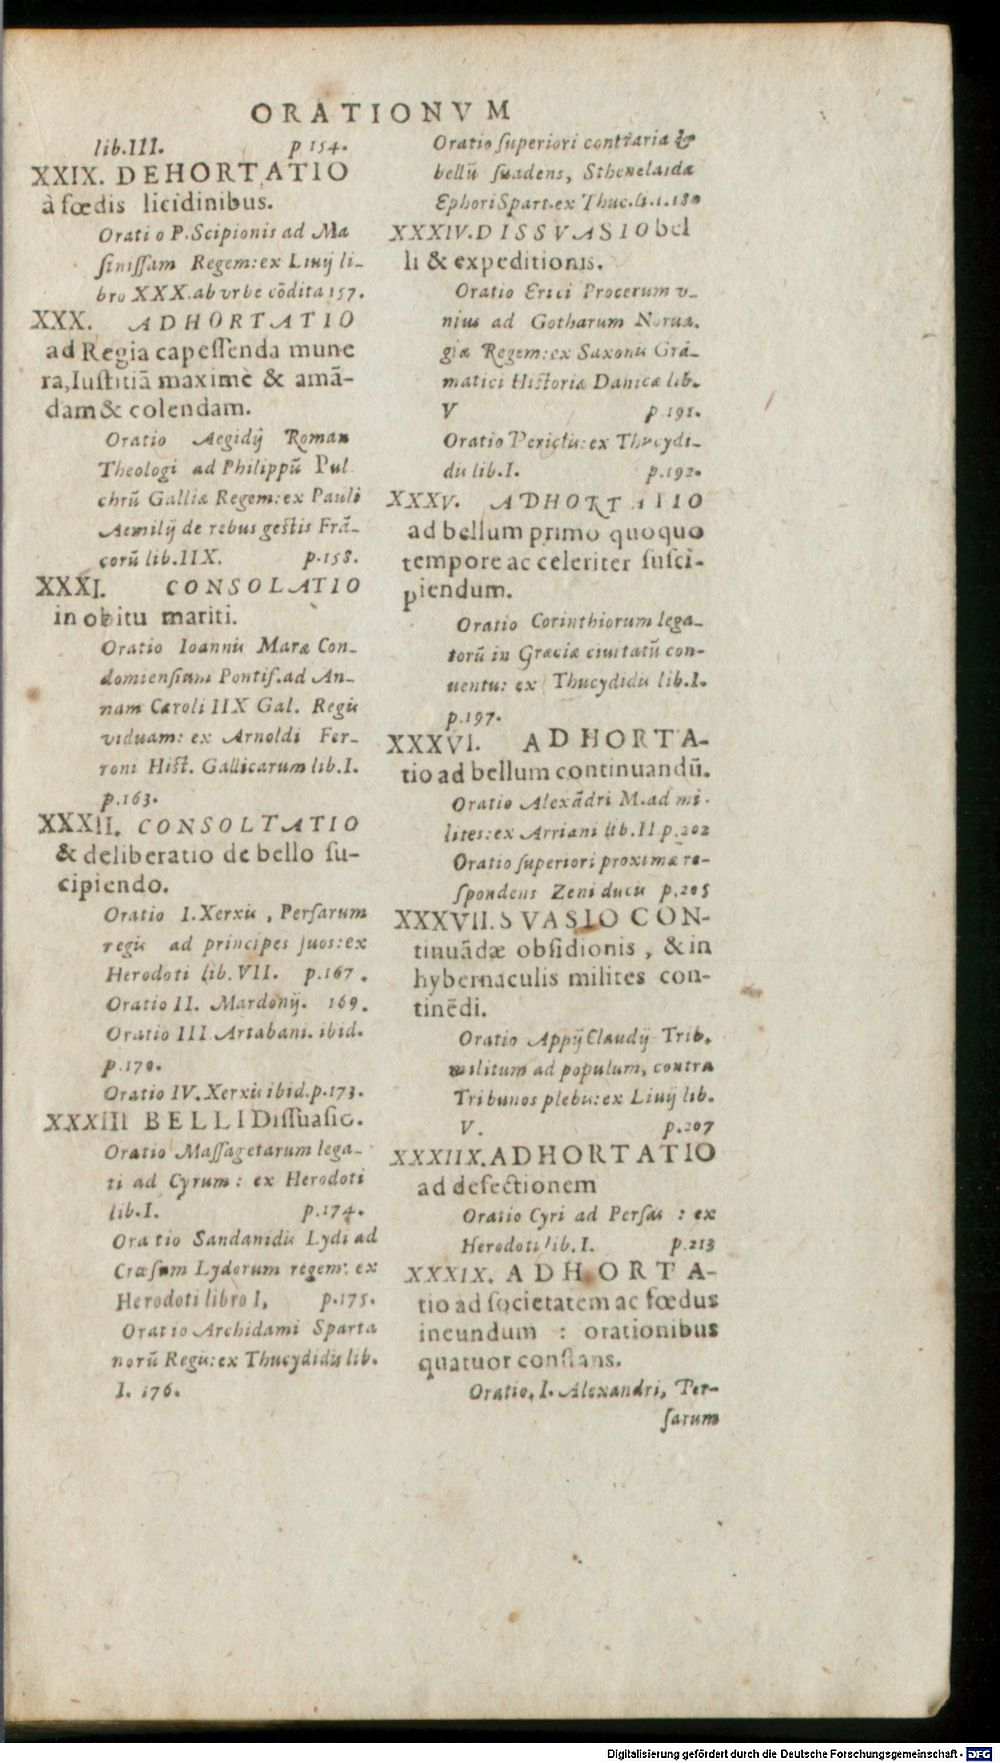 ORATIONVM
lib.III. p 154.
XXIX. DEHORTATIO
à fœdis licidinibus.
Orati o P. Scipionis ad Ma
sinissam Regem: ex Liuij li-
bro XXX. ab vrbe cōdita 157.
XXX. ADHORTATIO
ad Regia capessenda mune
ra, Iustitiā maximè & amā-
dam & colendam.
Oratio Aegidij Roman
Theologi ad Philippū Pul
chrū Galliæ Regem: ex Pauli
Aemilij de rebus gestis Frā-
corū lib. IIX. p. 158.
XXXI. CONSOLATIO
in obitu mariti.
Oratio Ioannis Maræ Con-
domiensium Pontif. ad An-
nam Caroli IIX Gal. Regis
viduam: ex Arnoldi Fer-
roni Hist. Gallicarum lib. I.
p. 163.
XXXII. CONSOLTATIO
& deliberatio de bello su-
cipiendo.
Oratio I. Xerxis, Persarum
regis ad principes suos: ex
Herodoti lib. VII. p. 167.
Oratio II. Mardonij. 169.
Oratio III Artabani. ibid.
p. 170.
Oratio IV. Xerxis ibid. p. 173.
XXXIII BELLI Dissuasio.
Oratio Massagetarum lega-
ti ad Cyrum: ex Herodoti
lib. I. p. 174.
Ora tio Sandanidis Lydi ad
Cræsum Lydorum regem: ex
Herodoti libro I, p. 175.
Oratio Archidami Sparta
norū Regis: ex Thucydidis lib.
I. 176.
Oratio superiori contraria &
bellū suadens, Sthenelaidæ
Ephori Spart. ex Thuc. li. 1. 180
XXXIV. DISSVASIO bel
li & expeditionis.
Oratio Erici Procerum v-
nius ad Gotharum Norua.
giæ Regem: ex Saxonis Grā-
matici Historiæ Danicæ lib.
V p. 191.
Oratio Periclis: ex Thucydi-
dis lib. I. p. 192.
XXXV. ADHORTATIO
ad bellum primo quoquo
tempore ac celeriter susci-
piendum.
Oratio Corinthiorum lega-
torū in Græciæ ciuitatū con-
uentu: ex Thucydidis lib. I.
p. 197.
XXXVI. ADHORTA-
tio ad bellum continuandū.
Oratio Alexādri M. ad mi.
lites: ex Arriani lib. II p. 202
Oratio superiori proximæ re-
spondens Zeni ducis p. 205
XXXVII. SVASIO CON-
tinuādæ obsidionis, & in
hybernaculis milites con-
tinēdi.
Oratio Appij Claudij Trib.
militum ad populum, contra
Tribunos plebis: ex Liuij lib.
V. p. 207
XXXIIX. ADHORTATIO
ad defectionem
Oratio Cyri ad Persas: ex
Herodoti lib. I. p. 213
XXXIX. ADHORTA-
tio ad societatem ac fœdus
ineundum: orationibus
quatuor constans.
Oratio, I. Alexandri, Per-
sarum
Digitalisierung gefördert durch die Deutsche Forschungsgemeinschaft - DFG